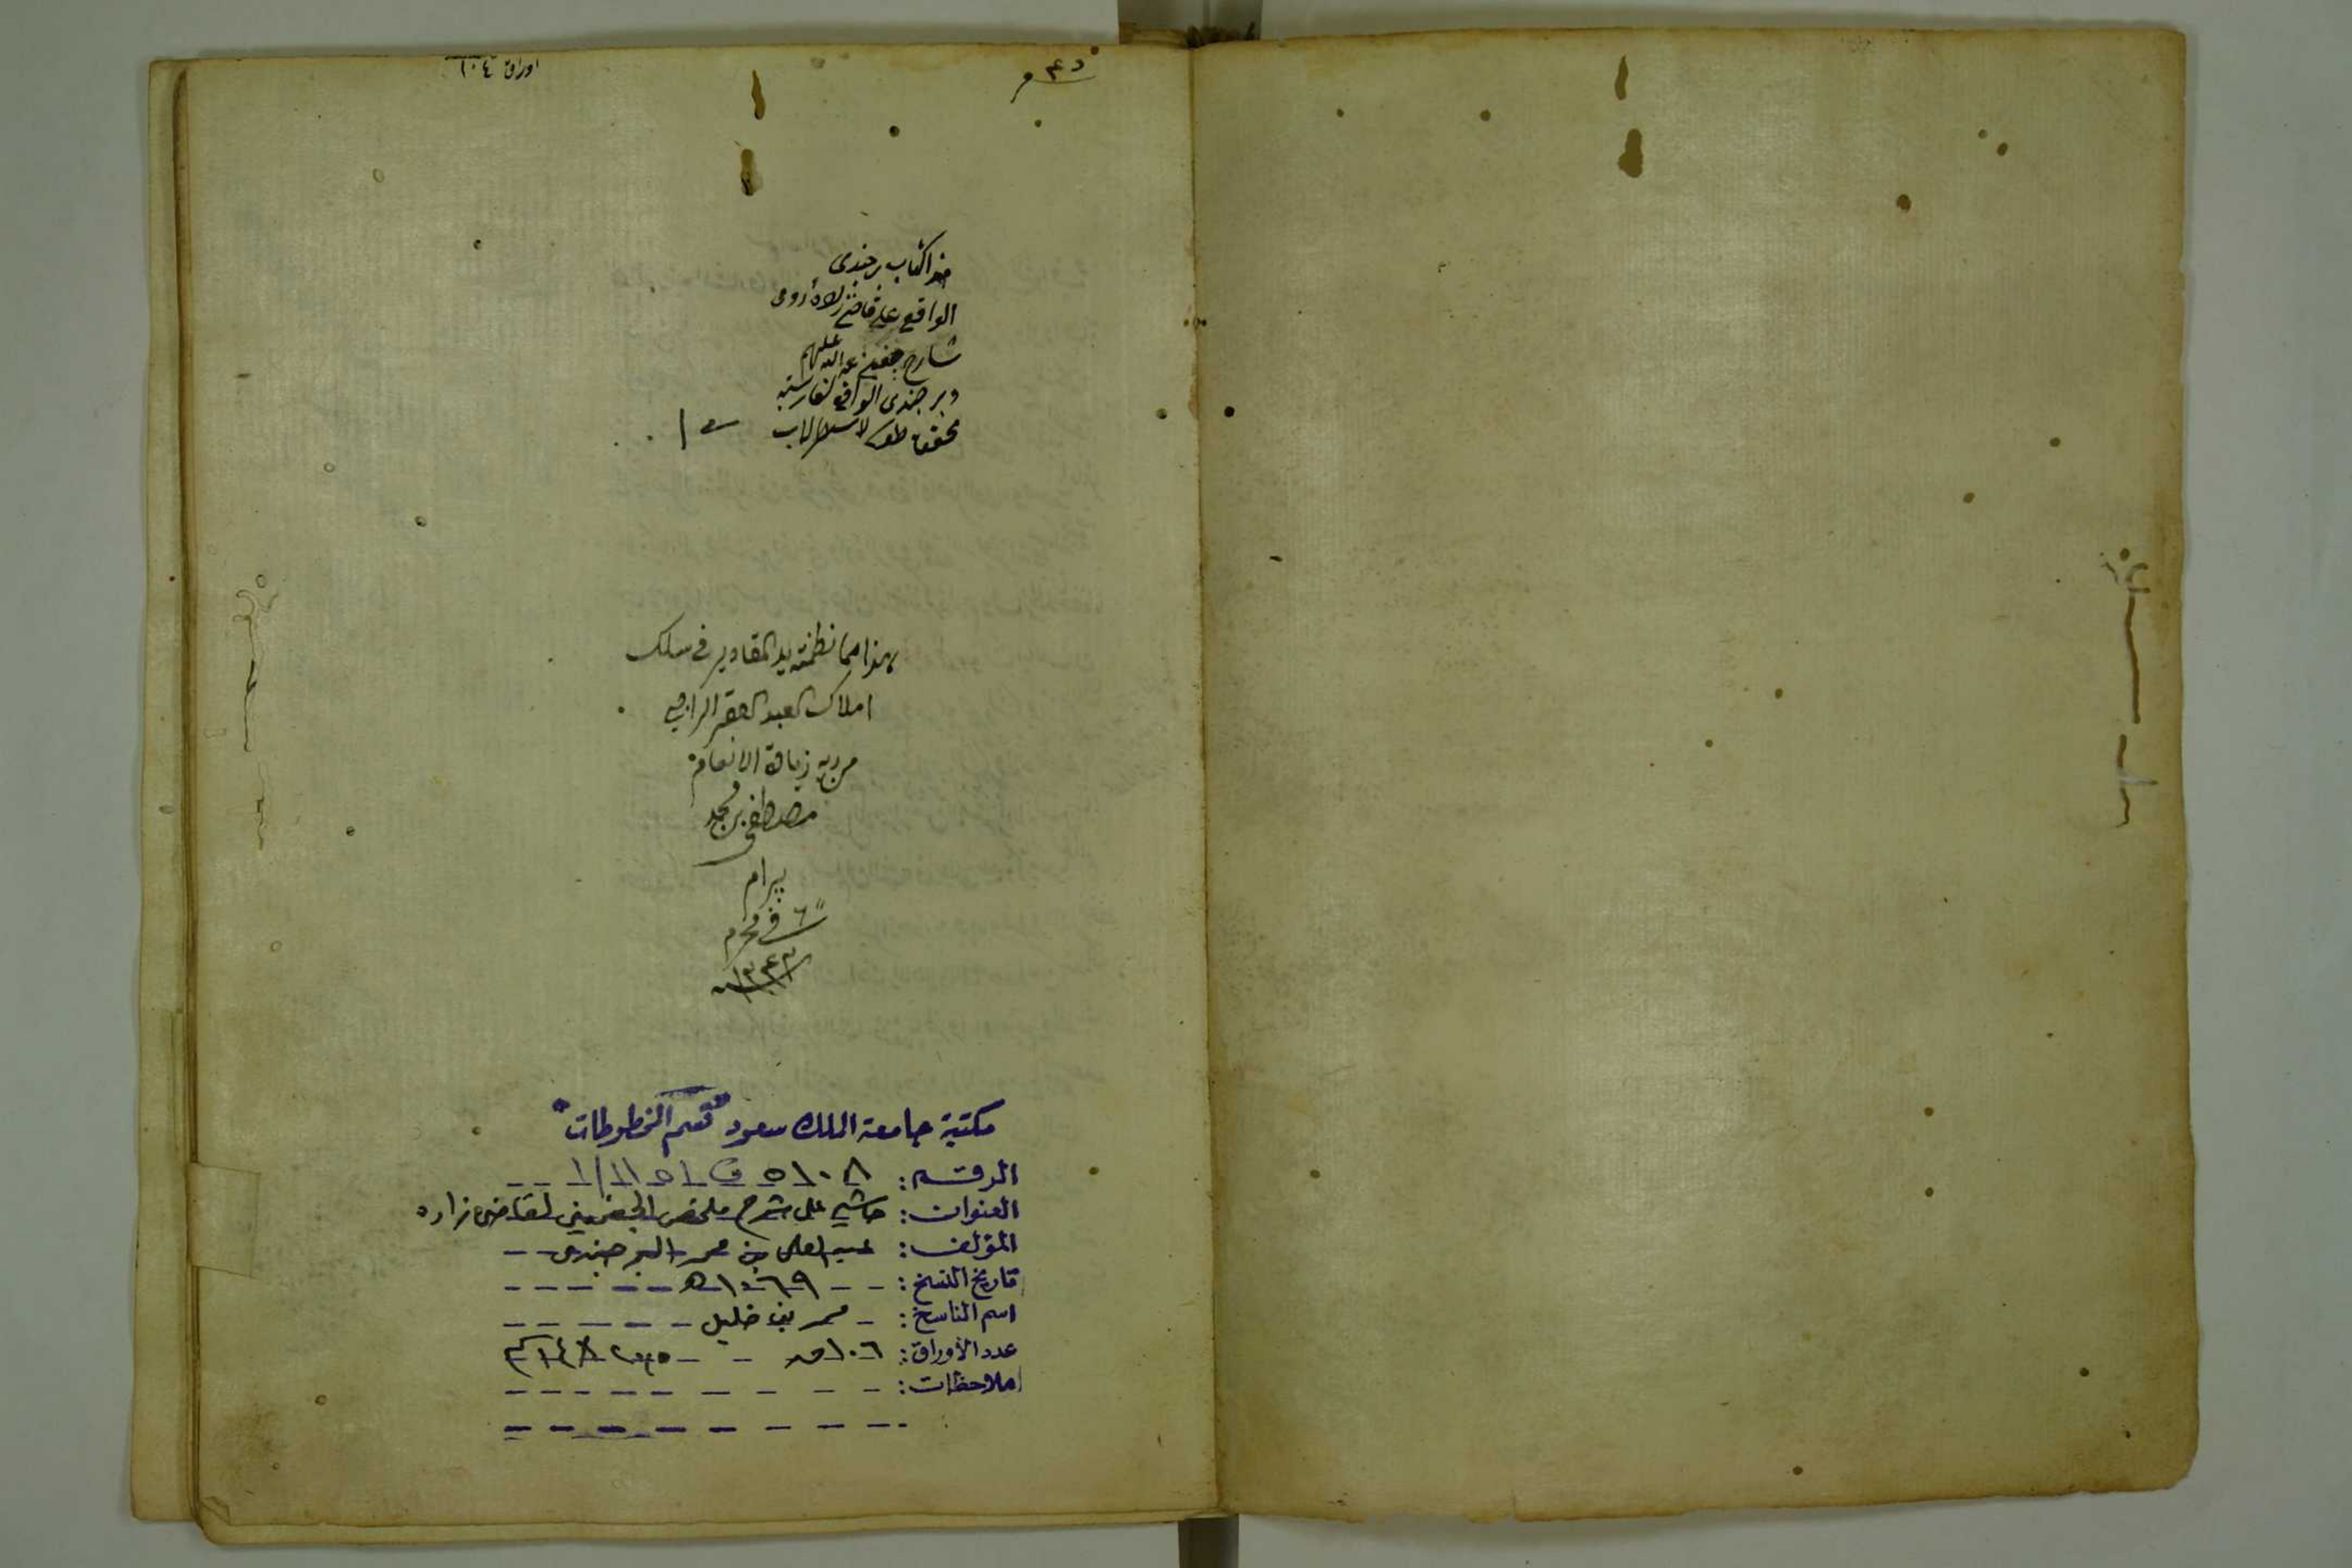 اوراق ١٠٤
هذا كتاب برجندى
الواقع على قاضى زاده رومى
شارح جغمنى عليهم
وبرجندى الواقع لفارسيه
لاسطرلاب
هذا مما نظمته يد المقادير فى سلك
املاك العبد الفقير الراجى
من ربه زيادة الانعام
مصطفى بن محمد
بيرام
٦ فى محرم
١٣٤٣
مكتبة جامعة الملك سعود قسم المخطوطات
الرقم: ٥١٠٨ ف ١٥١١/١
العنوان: حاشية على شرح ملخص الجغميني لقاضي زاده
المؤلف: عبد العلي بن محمد البرجندي
تاريخ النسخ: ١٠٦٩هـ
اسم الناسخ: محمد بن خليل
عدد الأوراق: ١٠٦ ق
ملاحظات: